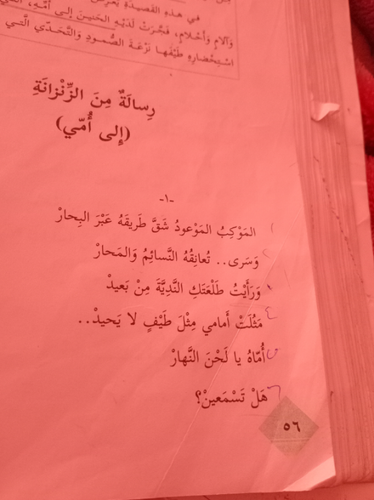 في هذه القصيدة يعرض
وآلام وأحلام، فجّرتْ لديْهِ الحنينَ إلى أمّهِ، التي
استحضارِهِ طيْفَها نزعةَ الصّمودِ والتّحدّي الّتي
رِسالَةٌ مِنَ الزِّنْزانَةِ
(إِلى أُمّي)
-١-
المَوْكِبُ المَوْعودُ شَقَّ طَريقَهُ عَبْرَ البِحارْ
وَسَرى.. تُعانِقُهُ النَّسائِمُ وَالمَحارْ
وَرَأَيْتُ طَلْعَتَكِ النَّدِيَّةَ مِنْ بَعيدْ
مَثُلَتْ أَمامي مِثْلَ طَيْفٍ لا يَحيدْ..
أُمّاهُ يا لَحْنَ النَّهارْ
هَلْ تَسْمَعينْ؟
٥٦